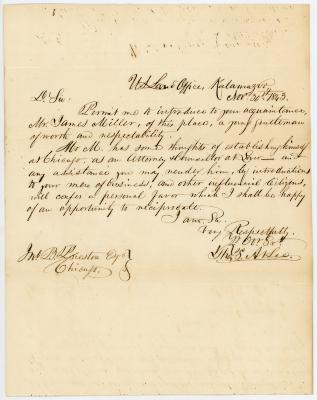 U.S. Land Office, Kalamazoo
Nov. 20th, 1843.
Dr. Sir:
Permit me to introduce to your acquaintance,
Mr. James Miller, of this place, a young gentleman
of worth and respectability.
Mr M. has some thoughts of establishing himself
at Chicago, as an Attorney & Counsellor at Law— and
any assistance you may render him, by introductions
to your men of business, and other influential Citizens,
will confer a personal favor which I shall be happy
of an opportunity to reciprocate.
I am, Sir,
Very Respectfully,
Yr Obt Svt
Esqr
Chicago.